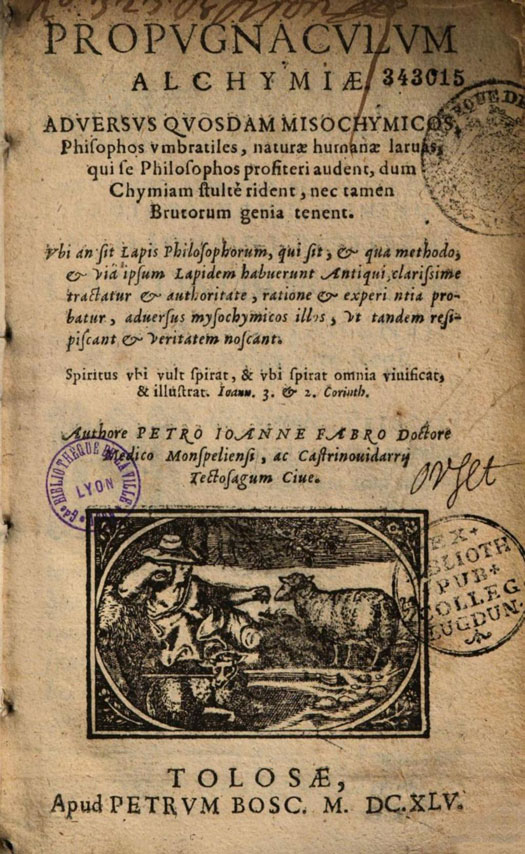 PROPVGNACVLVM
ALCHYMIÆ
343015
ADVERSVS QVOSDAM MISOCHYMICOS,
Phisophos vmbratiles, naturæ humanæ laruas,
qui se Philosophos profiteri audent, dum
Chymiam stultè rident, nec tamen
Brutorum genia tenent.
Vbi an sit Lapis Philosophorum, qui sit, & qua methodo,
& viâ ipsum Lapidem habuerunt Antiqui, clarissime
tractatur & authoritate, ratione & experi ntia pro-
batur, aduersus mysochymicos illos, vt tandem resi-
piscant & veritatem noscant.
Spiritus vbi vult spirat, & vbi spirat omnia viuificat,
& illustrat. Ioann. 3. & 2. Corinth.
Authore PETRO IOANNE FABRO Doctore
Medico Monspeliensi, ac Castrinouidarrij
Tectosagum Ciue.
BIBLIOTHEQUE DE LA VILLE
LYON
EX
BIBLIOTH
PUB
COLLEG
LUGDUN.
TOLOSÆ,
Apud PETRVM BOSC. M. DC.XLV.